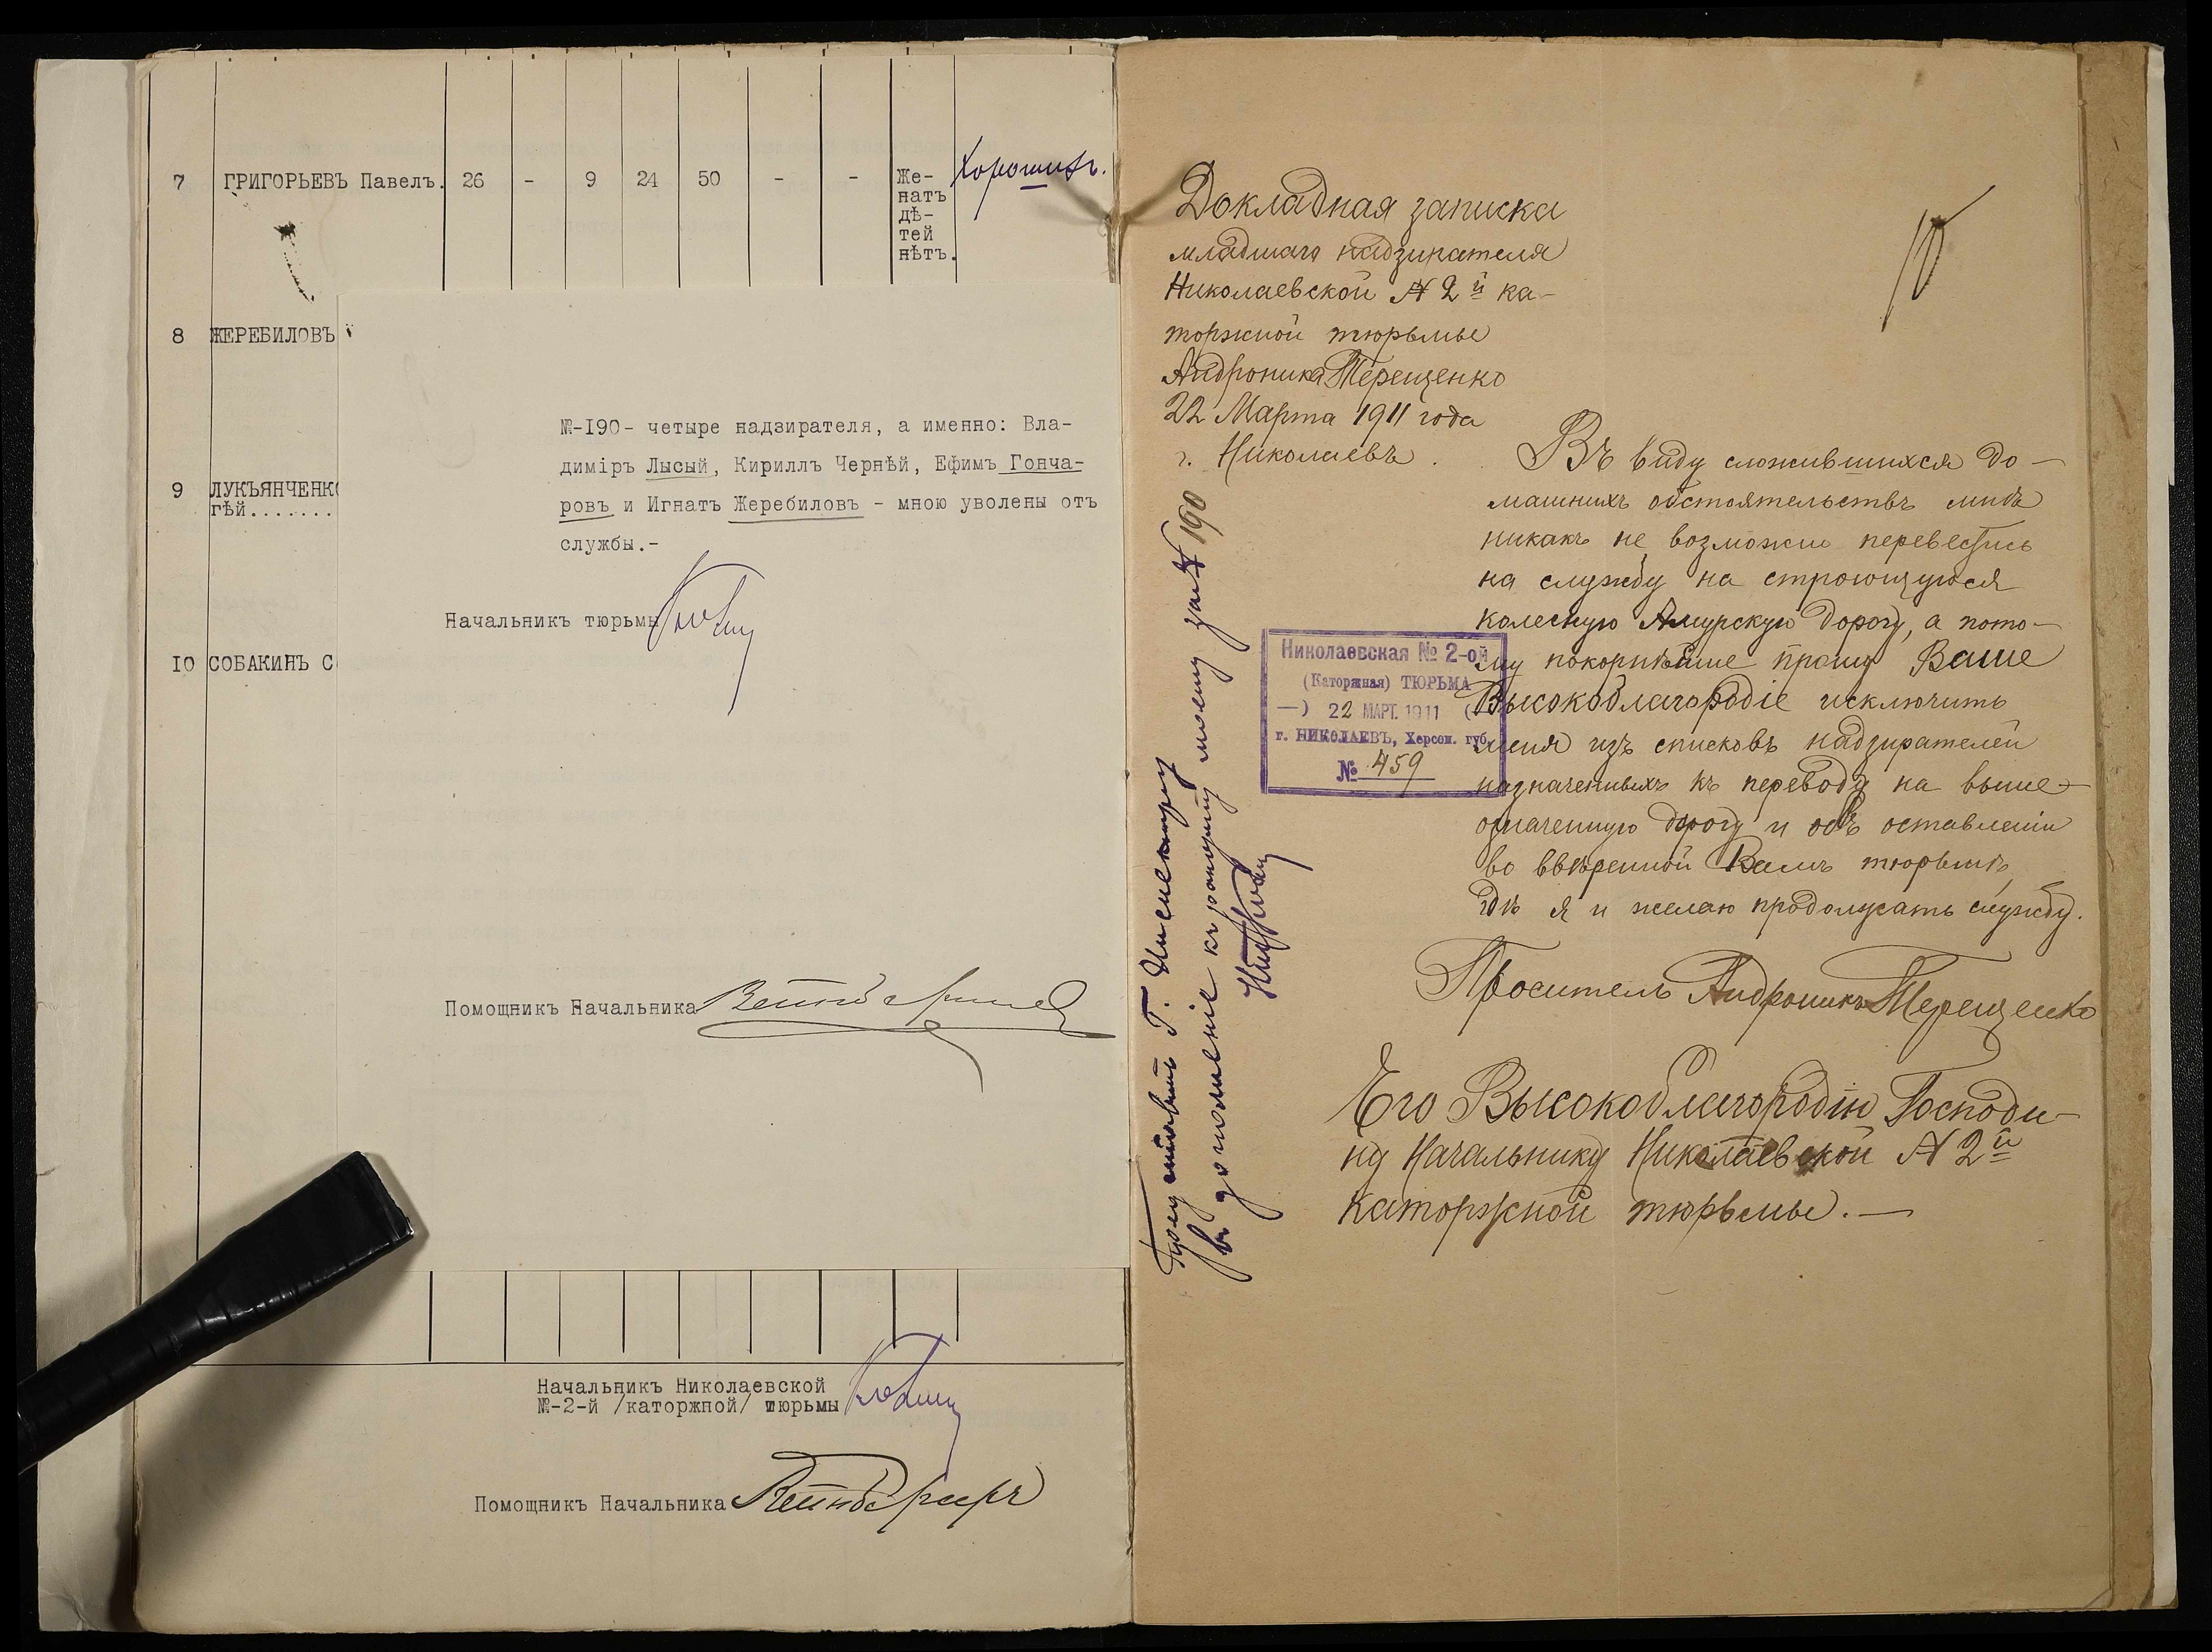 7 ГРИГОРЬЕВЪ Павелъ. 26 - 9 24 50 - - Же-
натъ
дѣ-
тей
нѣтъ.
Хорошихъ.
8 ЖЕРЕБИЛОВЪ
9 ЛУКЪЯНЧЕНК
гѣй.......
10 СОБАКИНЪ С
№-190- четыре надзирателя, а именно: Вла-
димiръ Лысый, Кириллъ Чернѣй, Ефимъ Гонча-
ровъ и Игнатъ Жеребиловъ - мною уволены отъ
службы.-
Начальникъ тюрьмы
Помощникъ Начальника
Начальникъ Николаевской
№-2-й /каторжной/ тюрьмы
Помощникъ Начальника
Докладная записка
младшаго надзирателя
Николаевской № 2й ка-
торжной тюрьмы
Андроника Терещенко
22 Марта 1911 года
г. Николаевъ.
Въ виду сложившихся до-
машнихъ обстоятельствъ мнѣ
никакъ не возможно перевестись
на службу на строющуюся
колесную Амурскую дорогу, а пото-
му покорнѣйше прошу Ваше
Высокоблагородіе исключить
меня изъ списковъ надзирателей
назначенныхъ къ переводу на выше-
означенную дорогу и объ оставленіи
во ввѣренной Вамъ тюрьмѣ,
гдѣ я и желаю продолжать службу.
Проситель Андроникъ Терещенко
Его Высокоблагородію Господи-
ну Начальнику Николаевской № 2й
каторжной тюрьмы.—
Николаевская № 2-ой
(Каторжная) ТЮРЬМА
—) 22 МАРТ. 1911 (—
г. НИКОЛАЕВЪ, Херсон. губ.
№ 459
Представить Г. Инспектору
въ дополненіе къ рапорту моему за № 190